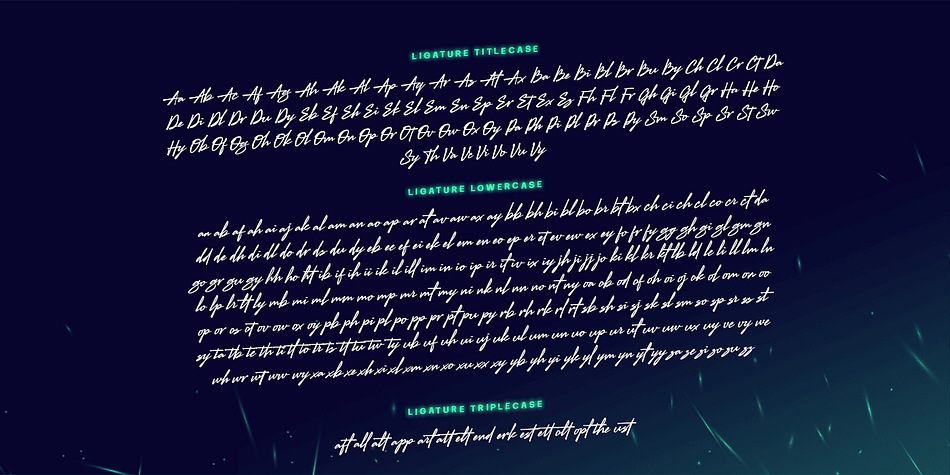 LIGATURE TITLECASE
Aa Ab Ac Af Ag Ah Ak Al Ap Aq Ar As At Ax Ba Be Bi Bl Br Bu By Ch Cl Cr Ct Da
De Di Dl Dr Du Dy Eb Ef Eh Ei Ek El Em En Ep Er Et Ex Ey Fh Fl Fr Gh Gi Gl Gr Ha He Ho
Hy Ob Of Og Oh Ok Ol Om On Op Or Ot Ov Ow Ox Oy Pa Ph Pi Pl Pr Ps Py Sm So Sp Sr St Sw
Sy Th Va Ve Vi Vo Vu Vy
LIGATURE LOWERCASE
aa ab af ah ai aj ak al am an ao ap ar at av aw ax ay bb bh bi bl bo br bt bx ch ci ch cl co cr ct da
dd de dh di dl do dr ds du dy eb ec ef ei ek el em en eo ep er et ev ew ex ey fo fr fy gg gh gi gl gm gn
go gr gu gy hh ho ht ib if ih ii ik il ill im in io ip ir it iv ix iy jh ji jj jo ki kl kr kt lb ld le li ll lm ln
lo lp lr lt ly mb mi ml mm mo mp mr mt my ni nk nl nn no nt ny oa ob od of oh oi oj ok ol om on oo
op or os ot ov ow ox oy pb ph pi pl po pp pr pt pu py rb rh rk rl rt sb sh si sj sk sl sm so sp sr ss st
sy ta tb te th ti tl to tr ts tt tu tw ty ub uf uh ui uj uk ul um un uo up ur ut uv uw ux uy ve vy we
wh wr wt ww wy xa xb xe xh xi xl xm xn xo xu xx xy yb yh yi yk yl ym yn yt yy za ze zi zo zu zz
LIGATURE TRIPLECASE
aft all alt app art att elt end erk est ett olt opt the ust